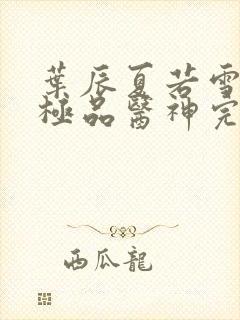 葉辰夏若雪
極品醫神完
西瓜龍